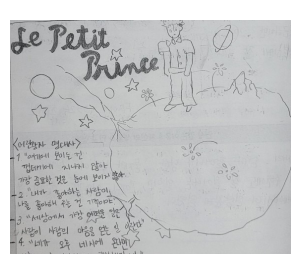 Le Petit
Prince
<어린왕자 명대사>
1. "여기에 보이는 건
껍데기에 지나지 않아
가장 중요한 것은 눈에 보이지 않아
2. "내가 좋아하는 사람이
나를 좋아해 주는 건 기적이야
3. "세상에서 가장 어려운 일은
사람이 사람의 마음을 얻는 일
4. "네가 오후 네시에 온다면